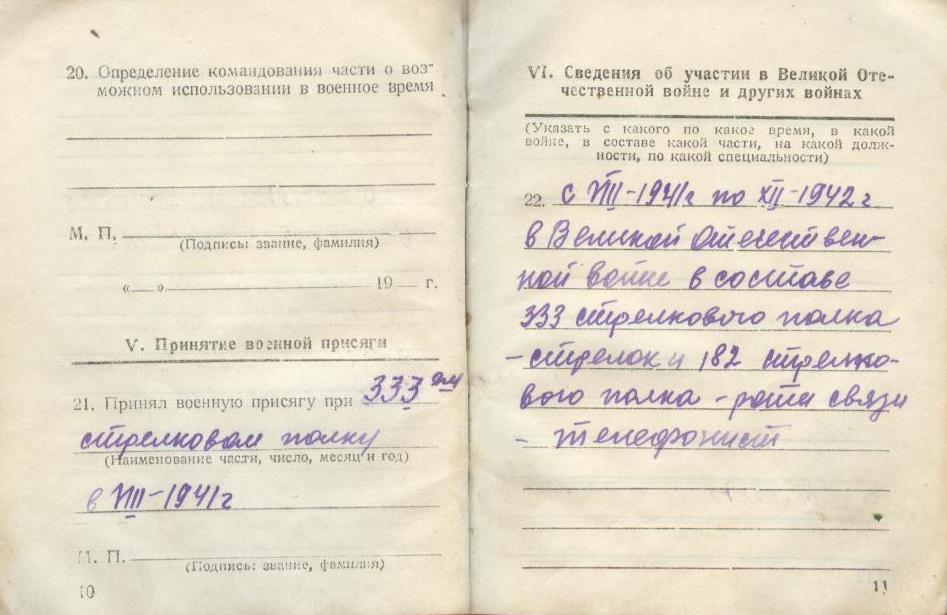 20. Определение командования части о воз-
можном использовании в военное время
М. П.
(Подпись: звание, фамилия)
«—»  19  г.
V. Принятие военной присяги
21. Принял военную присягу при 333 ом
стрелковом полку
(Наименование части, число, месяц и год)
в VIII-1941г
М. П.
(Подпись: звание, фамилия)
10
VI. Сведения об участии в Великой Оте-
чественной войне и других войнах
(Указать с какого по какое время, в какой
войне, в составе какой части, на какой долж-
ности, по какой специальности)
22. с VIII-1941г по XII-1942 г
в Великой Отечествен-
ной войне в составе
333 стрелкового полка
- стрелок и 182 стрелко-
вого полка - роты связи
- телефонист
11